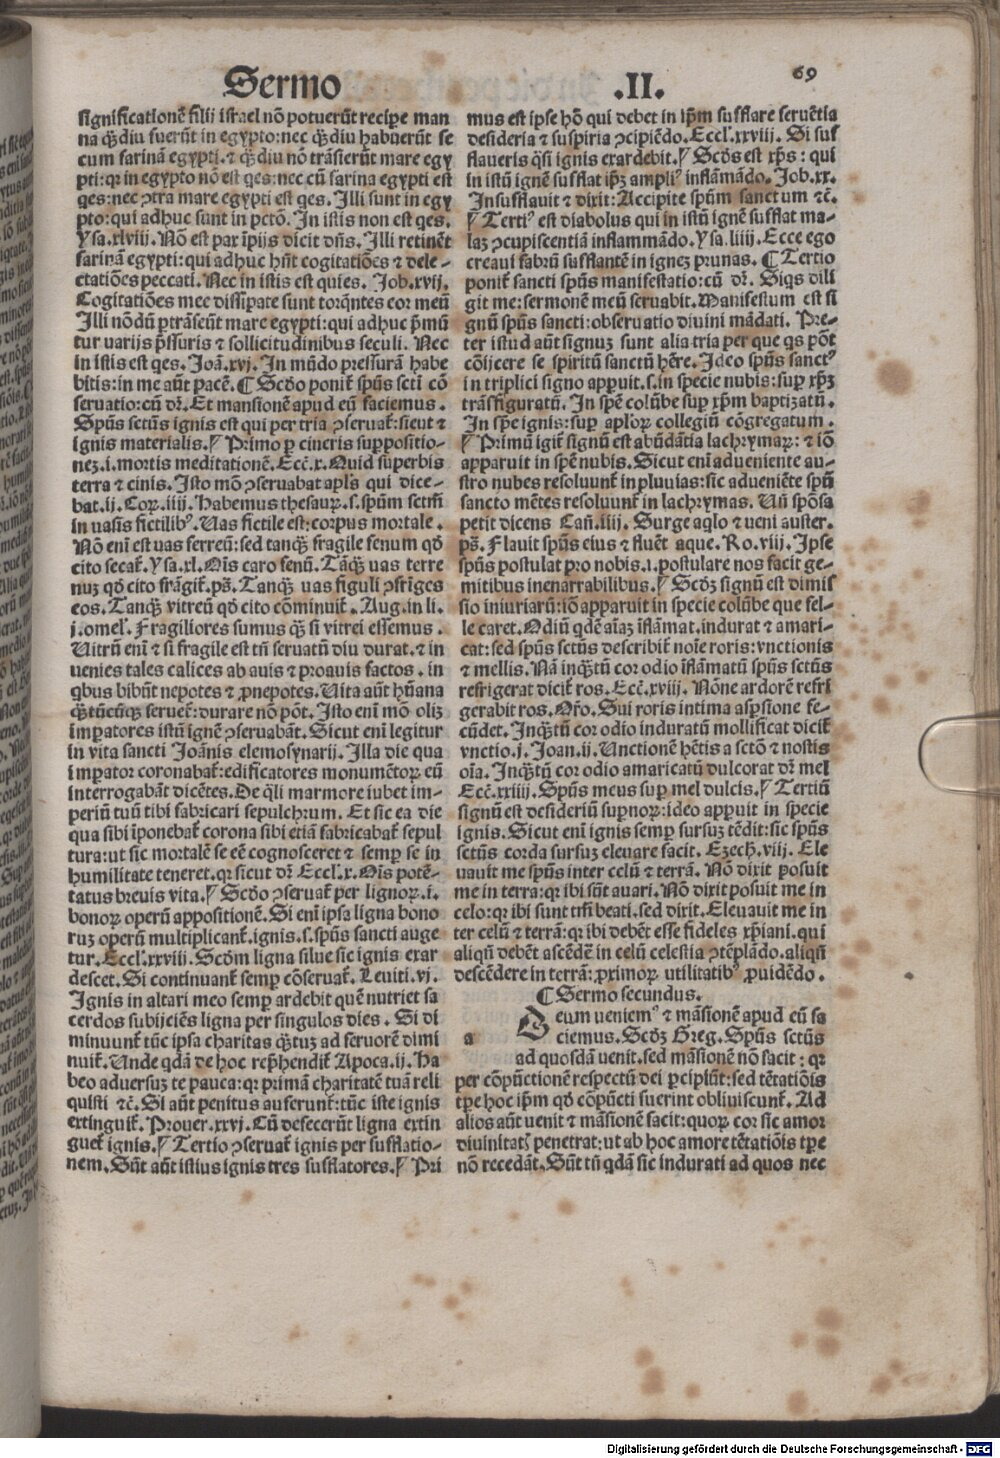 Sermo .II. 69
significationē filij israel nō potuerūt recipe man
na q̄diu fuerūt in egypto: nec q̄diu habuerūt se
cum farinā egypti. ⁊ q̄diu nō trāsierūt mare egy
pti: qr in egypto nō est ges: nec cū farina egypti est
ges: nec ↄtra mare egypti est ges. Illi sunt in egy
pto: qui adhuc sunt in pctō. In istis non est ges.
Ysa. xlviii. Nō est pax īpijs dicit dn̄s. Illi retinēt
farinā egypti: qui adhuc hn̄t cogitatiōes ⁊ dele-
ctatiōes peccati. Nec in istis est quies. Job. xvij.
Cogitatiōes mee dissipate sunt torq̄ntes cor meū
Illi nōdū p̄trāseūt mare egypti: qui adhuc p̄mū
tur varijs p̄ssuris ⁊ sollicitudinibus seculi. Nec
in istis est q̄es. Joā. xvj. In mūdo pressurā habe
bitis: in me aūt pacē. ¶ Scd̄o ponit̄ spūs scti cō
seruatio: cū dr̄. Et mansionē apud eū faciemus.
Spūs sctūs ignis est qui per tria ↄseruat̄: sicut ⁊
ignis materialis. ⸿ Primo p̄ cineris suppositio-
nez. i. mortis meditationē. Ecc̄. x. Quid superbis
terra ⁊ cinis. Isto mō ↄseruabat apl's qui dice-
bat. ij. Coꝝ. iiij. Habemus thesauꝝ. s. spūm sctm̄
in uasis fictilib⁹. Uas fictile est: corpus mortale.
Nō eni est uas ferreū: sed tanq̄ fragile fenum qd̄
cito secat̄. Ysa. xl. Ois caro fenū. Tāq̄ uas terre
nuz qd̄ cito frāgit̄. ps̄. Tanq̄ uas figuli ↄfriges
eos. Tanq̄ vitreū qd̄ cito cōminuit̄. Aug. in li.
j. omel'. Fragiliores sumus q̄ si vitrei essemus.
Uitrū eni ⁊ si fragile est tn̄ seruatū diu durat. ⁊ in
uenies tales calices ab auis ⁊ proauis factos. in
qbus bibūt nepotes ⁊ ꝓnepotes. Uita aūt hūana
q̄tūcūq̄ seruet̄: durare nō pōt. Isto eni mō oliz
īmp̄atores istū ignē ↄseruabāt. Sicut eni legitur
in vita sancti Joānis elemosynarij. Illa die qua
imp̄ator coronabat̄: edificatores monumētoꝝ eū
interrogabāt dicētes. De q̄li marmore iubet im-
periū tuū tibi fabricari sepulchrum. Et sic ea die
qua sibi īponebat̄ corona sibi etiā fabricabat̄ sepul
tura: ut sic mortalē se eē cognosceret ⁊ semp̄ se in
humilitate teneret. qr sicut dr̄ Eccl. x. Ois potē-
tatus breuis vita. ⸿ Scd̄o ↄseruat̄ per lignoꝝ. i.
bonoꝝ operū appositionē. Si eni ipsa ligna bono
ruz operū multiplicant̄. ignis. s. spūs sancti auge
tur. Eccl. xxviii. Scdm̄ ligna silue sic ignis exar
descet. Si continuant̄ semp̄ cōseruat̄. Leuiti. vj.
Ignis in altari meo semp̄ ardebit quē nutriet sa
cerdos subijciēs ligna per singulos dies. Si di
minuunt̄ tūc ipsa charitas q̄tuz ad feruorē dimi
nuit̄. Unde qdā de hoc rep̄hendit̄ Apoca. ij. Ha
beo aduersuz te pauca: qr primā charitatē tuā reli
quisti ⁊c̄. Si aūt penitus auferunt̄: tūc iste ignis
extinguit̄. Prouer. xxvj. Cū defecerūt ligna extin
guet̄ ignis. ⸿ Tertio ↄseruat̄ ignis per sufflatio-
nem. Sūt aūt istius ignis tres sufflatores. ⸿ Pri
mus est ipse hō qui debet in ip̄m sufflare feruētia
desideria ⁊ suspiria ↄcipiēdo. Eccl. xxviii. Si suf
flaueris q̄si ignis exardebit. ⸿ Scd̄s est xp̄s: qui
in istū ignē sufflat ip̄z ampli⁹ inflāmādo. Job. xx.
Insufflauit ⁊ dixit: Accipite spūm sanctum ⁊c̄.
⸿ Terti⁹ est diabolus qui in istū ignē sufflat ma-
laz ↄcupiscentiā inflammādo. Ysa. liiii. Ecce ego
creaui fabrū sufflantē in ignez prunas. ¶ Tertio
ponit̄ sancti spūs manifestatio: cū dr̄. Siqs dili
git me: sermonē meū seruabit. Manifestum est si
gnū spūs sancti: obseruatio diuini mādati. Pre-
ter istud aūt signuz sunt alia tria per que qs pōt
cōijcere se spiritū sanctū hēre. Ideo spūs sanct⁹
in triplici signo appuit. s. in specie nubis: sup̄ xp̄z
trāsfiguratū. In spē colūbe sup̄ xp̄m baptizatū.
In spē ignis: sup̄ apl'oꝝ collegiū cōgregatum.
⸿ Primū igit̄ signū est abūdātia lachrymaꝝ: ⁊ iō
apparuit in spē nubis. Sicut eni adueniente au-
stro nubes resoluunt̄ in pluuias: sic adueniēte spū
sancto mētes resoluunt̄ in lachrymas. Uū spōsa
petit dicens Cañ. iiij. Surge aqlo ⁊ ueni auster.
ps̄. Flauit spūs eius ⁊ fluēt aque. Ro. viij. Ipse
spūs postulat pro nobis. i. postulare nos facit ge-
mitibus inenarrabilibus. ⸿ Scd̄z signū est dimis
sio iniuriarū: iō apparuit in specie colūbe que fel-
le caret. Odiū qdē aīaz īflāmat. indurat ⁊ amari-
cat: sed spūs sctūs describit̄ noīe roris: vnctionis
⁊ mellis. Nā inq̄tū cor odio īflāmatū spūs sctūs
refrigerat dicit̄ ros. Ecc̄. xviii. Nōne ardorē refri
gerabit ros. Or̄o. Sui roris intima asp̄sione fe-
cūdet. Inq̄tū cor odio induratū mollificat dicit̄
vnctio. j. Joan. ii. Unctionē hētis a sctō ⁊ nostis
oīa. Inq̄tū cor odio amaricatū dulcorat dr̄ mel
Ecc̄. xxiiii. Spūs meus sup̄ mel dulcis. ⸿ Tertiū
signū est desideriū sup̄noꝝ: ideo appuit in specie
ignis. Sicut eni ignis semp̄ sursuz tēdit: sic spūs
sctūs corda sursuz eleuare facit. Ezech. viij. Ele
uauit me spūs inter celū ⁊ terrā. Nō dixit posuit
me in terra: qr ibi sūt auari. Nō dixit posuit me in
celo: qr ibi sunt tm̄ beati. sed dixit. Eleuauit me in
ter celū ⁊ terrā: qr ibi debēt esse fideles xp̄iani. qui
aliqū debēt ascēdē in celū celestia ↄtēplādo. aliqū
descēdere in terrā: ꝓximoꝝ utilitatib⁹ ꝓuidēdo.
¶ Sermo secundus.
a Deum ueniem⁹ ⁊ māsionē apud eū fa
ciemus. Scd̄z Greg. Spūs sctūs
ad quosdā uenit. sed māsionē nō facit: qr
per cōpūctionē respectū dei ꝑcipiūt: sed tētatiōis
tp̄e hoc ip̄m qd̄ cōpūcti fuerint obliuiscunt̄. Ad
alios aūt uenit ⁊ māsionē facit: quoꝝ cor sic amor
diuinitat̄ penetrat: ut ab hoc amore tētatiōis tp̄e
nō recedāt. Sūt tn̄ qdā sic indurati ad quos nec
Digitalisierung gefördert durch die Deutsche Forschungsgemeinschaft - DFG